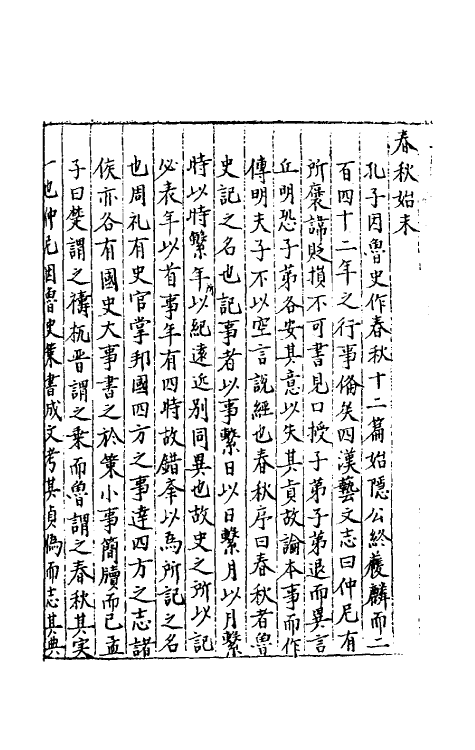 春秋始末
孔子因魯史作春秋十二篇始隱公終獲麟而二
百四十二年之行事俻矣四漢藝文志曰仲尼有
所襃諱貶損不可書見口授子弟子弟退而異言
丘明恐子弟各安其意以失其真故論本事而作
傳明夫子不以空言說經也春秋序曰春秋者魯
史記之名也記事者以事繫日以日繫月以月繫
時以時繫年所以紀遠近别同異也故史之所以記
必表年以首事年有四時故錯舉以為所記之名
也周礼有史官掌邦國四方之事達四方之志諸
侯亦各有國史大事書之於策小事簡牘而已孟
子曰楚謂之檮杌晋謂之乗而魯謂之春秋其実
一也仲尼因魯史策書成文考其真偽而志其典